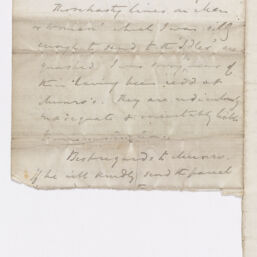 Those hasty lines on 'Man
or Woman' which I was silly
enough to send to the 'Idler' are
quashed. I was
them having been read at
Munro's. They are ridiculously
inadequate &
Best regards to Munro.
if he will kindly send the parcel